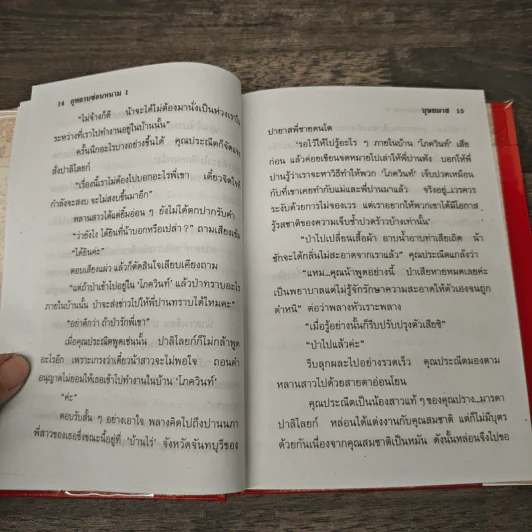 14 กุหลาบซ่อนหนาม 1
"ไม่จ้างก็ดี น้าจะได้ไม่ต้องมานั่งเป็นห่วงเรา
ระหว่างที่เราไปทำงานอยู่ในบ้านนั้น"
ครั้นนึกอะไรบางอย่างขึ้นได้ คุณประณีตก็จัดแจง
สั่งปาลิไลยก์
"เรื่องนี้เราไม่ต้องไปบอกอะไรพี่เขา เดี๋ยวจิตใจที่
กำลังจะสงบ จะไม่สงบขึ้นมาอีก"
หลานสาวได้แต่ยิ้มอ่อน ๆ ยังไม่ได้ตกปากรับคำ
"ว่ายังไง ได้ยินที่น้าบอกหรือเปล่า?" ถามเสียงเข้ม
"ได้ยินค่ะ"
ตอบเสียงแผ่ว แล้วก็ตัดสินใจเลียบเคียงถาม
"แต่ถ้าป่าเข้าไปอยู่ใน 'โภควินท์' แล้วป่าทราบอะไร
ภายในบ้านนั้น ป่าจะส่งข่าวไปให้พี่ปานทราบได้ไหมคะ"
"อย่าดีกว่า ถ้าป่ารักพี่เขา"
เมื่อคุณประณีตพูดเช่นนั้น ปาลิไลยก์ก็ไม่กล้าพูด
อะไรอีก เพราะเกรงว่าเดี๋ยวน้าสาวจะไม่พอใจ ถอนคำ
อนุญาตไม่ยอมให้เธอเข้าไปทำงานในบ้าน 'โภควินท์'
"ค่ะ"
ตอบรับสั้น ๆ อย่างเอาใจ พลางคิดไปถึงปานนภา
พี่สาวของเธอซึ่งขณะนี้อยู่ที่ 'บ้านไร่' จังหวัดจันทบุรีของ
บุษยมาส 15
ปายาสพี่ชายคนโต
"รอไว้ให้ไปรู้อะไร ๆ ภายในบ้าน 'โภควินท์' เสีย
ก่อน แล้วค่อยเขียนจดหมายไปเล่าให้พี่ปานฟัง บอกให้พี่
ปานรู้ว่าเราจะหาวิธีทำให้พวก 'โภควินท์' เจ็บปวดเหมือน
กับที่เขาเคยทำกับแม่และพี่ปานมาแล้ว จริงอยู่..เวรควร
ระงับด้วยการไม่จองเวร แต่เราอยากให้พวกเขาได้มีโอกาส
รู้รสชาติของความเจ็บช้ำปวดร้าวบ้างเท่านั้น"
"ป่าไปเปลี่ยนเสื้อผ้า อาบน้ำอาบท่าเสียเถิด น้า
ชักจะได้กลิ่นไม่สะอาดจากเราแล้ว" คุณประณีตแกล้งว่า
"แหม...คุณน้าพูดอย่างนี้ ป่าเสียหายหมดเลยค่ะ
เป็นพยาบาลแต่ไม่รู้จักรักษาความสะอาดให้ตัวเองจนถูก
ตำหนิ" ต่อว่าพลางหัวเราะพลาง
"เมื่อรู้อย่างนั้นก็รีบปรับปรุงตัวเสียซิ"
"ป่าไปแล้วค่ะ"
รีบลุกผละไปอย่างรวดเร็ว คุณประณีตมองตาม
หลานสาวไปด้วยสายตาอ่อนโยน
คุณประณีตเป็นน้องสาวแท้ ๆ ของคุณปราง..มารดา
ปาลิไลยก์ หล่อนได้แต่งงานกับคุณสมชาติ แต่ก็ไม่มีบุตร
ด้วยกันเนื่องจากคุณสมชาติเป็นหมัน ดังนั้นหล่อนจึงไปขอ